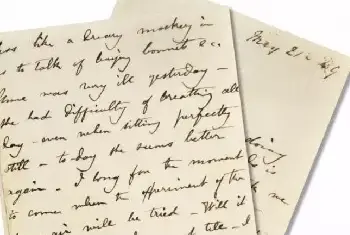 like a dreary mockery in
to talk of buying bonnets &c.
was very ill yesterday –
she had difficulty of breathing all
day – even when sitting perfectly
still – to-day she seems better
again. I long for the moment
to come when the experiment of the
air will be tried – Will it
I
May 21st 49
me